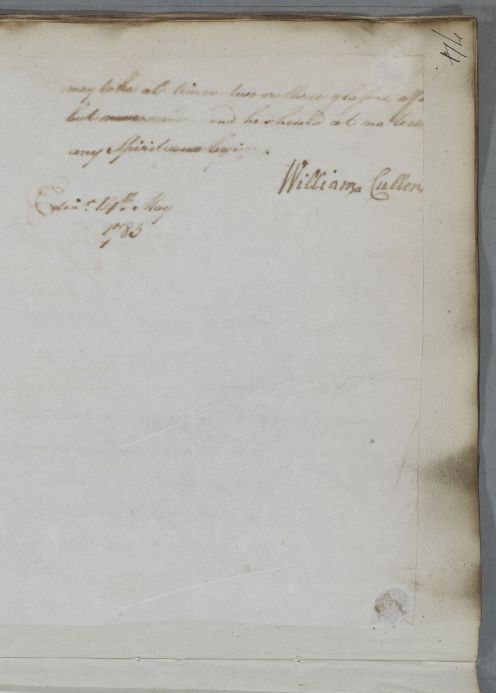 174
may take at times two or three glasses of
but never and he should at no time
any Spirituous
William Cullen
Edinr. 14th. May
1785